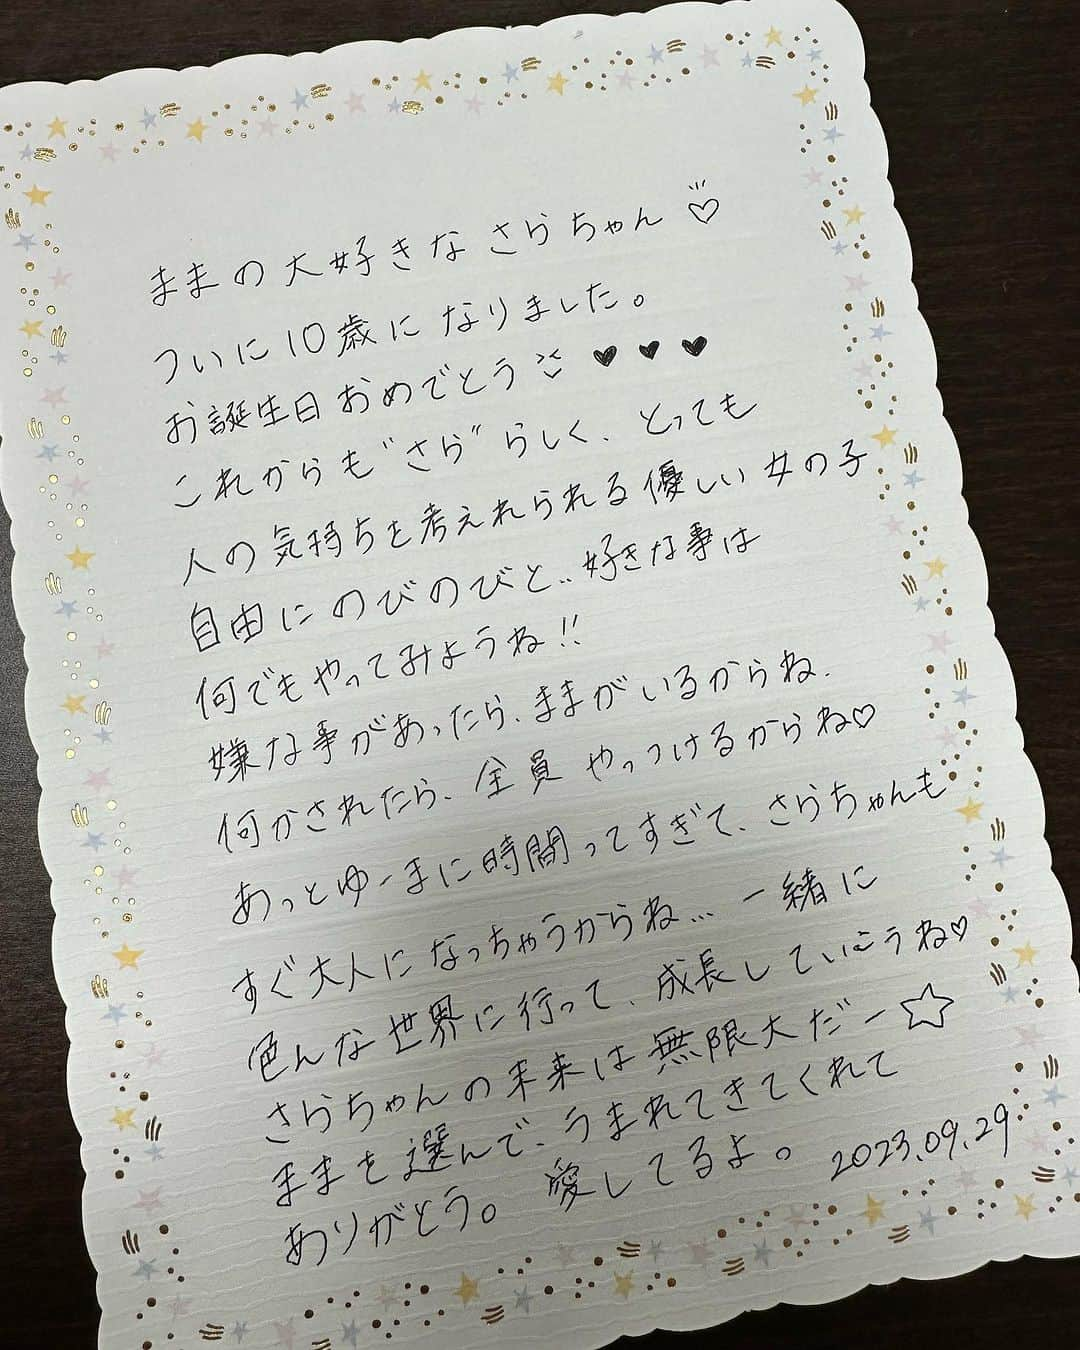 ままの大好きなさらちゃん♡
ついに10歳になりました。
お誕生日おめでとう ♥ ♥ ♥
これからも"さら"らしく、とっても
人の気持ちを考えれられる優しい女の子
自由にのびのびと..好きな事は
何でもやってみようね!!
嫌な事があったら、ままがいるからね、
何かされたら、全員やっつけるからね♡
あっとゆーまに時間ってすぎて、さらちゃんも
すぐ大人になっちゃうからね... 一緒に
色んな世界に行って、成長していこうね♡
さらちゃんの未来は無限大だー☆
ままを選んで、うまれてきてくれて
ありがとう。愛してるよ。 2023.09.29